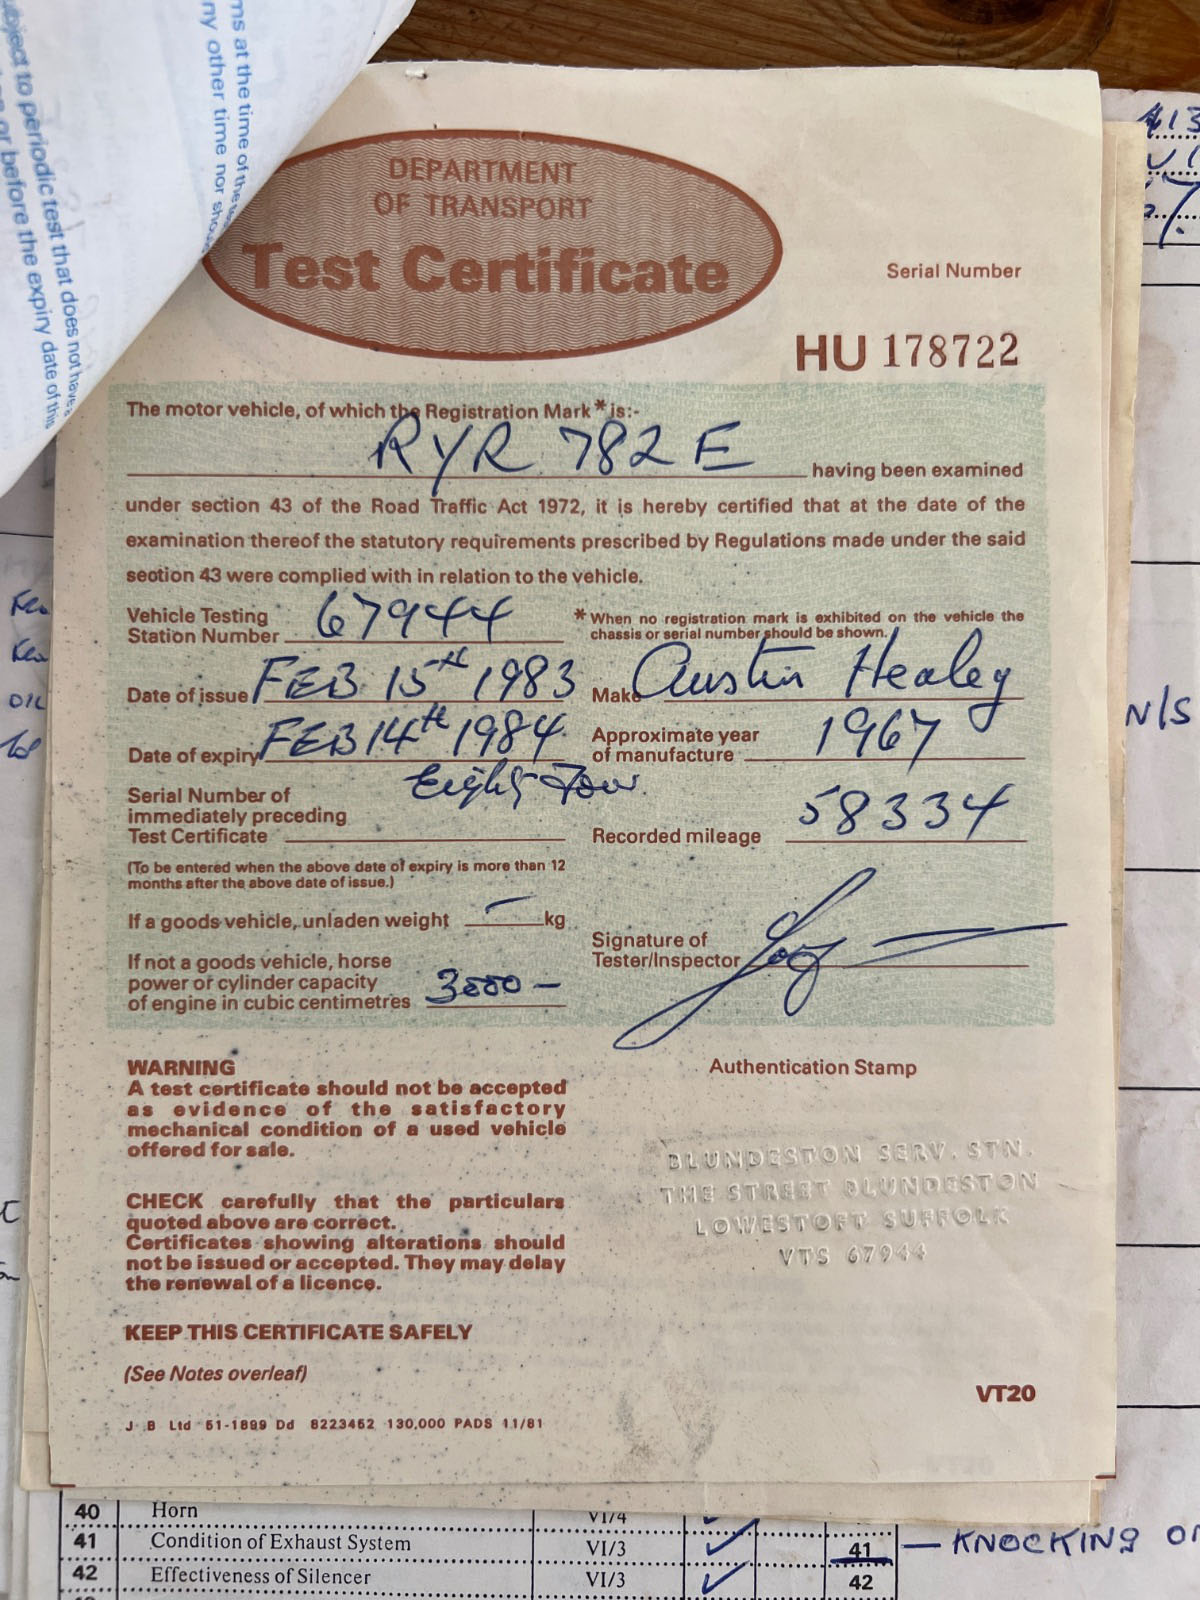 ms at the time of the
ny other time nor
bject to periodic test that does not have
on or before the expiry date of this
DEPARTMENT
OF TRANSPORT
Test Certificate
Serial Number
HU 178722
The motor vehicle, of which the Registration Mark * is:-
RYR 782 E
having been examined
under section 43 of the Road Traffic Act 1972, it is hereby certified that at the date of the
examination thereof the statutory requirements prescribed by Regulations made under the said
section 43 were complied with in relation to the vehicle.
Vehicle Testing
Station Number 67944
* When no registration mark is exhibited on the vehicle the
chassis or serial number should be shown.
Date of issue FEB 15th 1983
Make Austin Healey
Date of expiry FEB 14th 1984
Eighty Four
Approximate year
of manufacture 1967
Serial Number of
immediately preceding
Test Certificate
Recorded mileage 58334
(To be entered when the above date of expiry is more than 12
months after the above date of issue.)
If a goods vehicle, unladen weight – kg
If not a goods vehicle, horse
power or cylinder capacity
of engine in cubic centimetres 3000 –
Signature of
Tester/Inspector
WARNING
A test certificate should not be accepted
as evidence of the satisfactory
mechanical condition of a used vehicle
offered for sale.
CHECK carefully that the particulars
quoted above are correct.
Certificates showing alterations should
not be issued or accepted. They may delay
the renewal of a licence.
KEEP THIS CERTIFICATE SAFELY
(See Notes overleaf)
Authentication Stamp
BLUNDESTON SERV. STN.
THE STREET BLUNDESTON
LOWESTOFT SUFFOLK
VTS 67944
VT20
J B Ltd 51-1899 Dd 8223452 130,000 PADS 11/81
N/S
40 Horn VI/4
41 Condition of Exhaust System VI/3 ✓ 41 — KNOCKING
42 Effectiveness of Silencer VI/3 ✓ 42